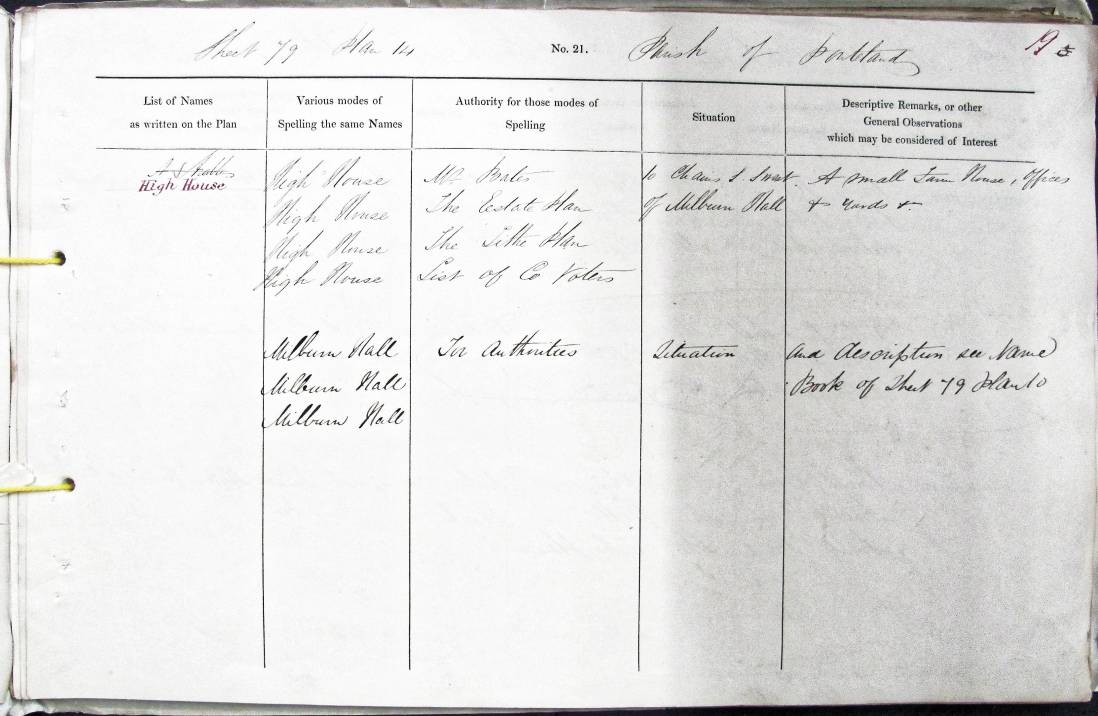 Sheet 79 Plan 14 No. 21. Parish of Ponteland 19 5
List of Names
as written on the Plan
Various modes of
Spelling the same Names
Authority for those modes of
Spelling
Situation
Descriptive Remarks, or other
General Observations
which may be considered of Interest
High House
High House Mr. Bates 10 Chains S. of A small Farm House, Offices
High House The Estate Plan of Milburn Hall & Yards &
High House The Tithe Plan
High House List of Co Voters
Milburn Hall For Authorities Situation and description see Name
Milburn Hall Book of Sheet 79 Plan 10
Milburn Hall